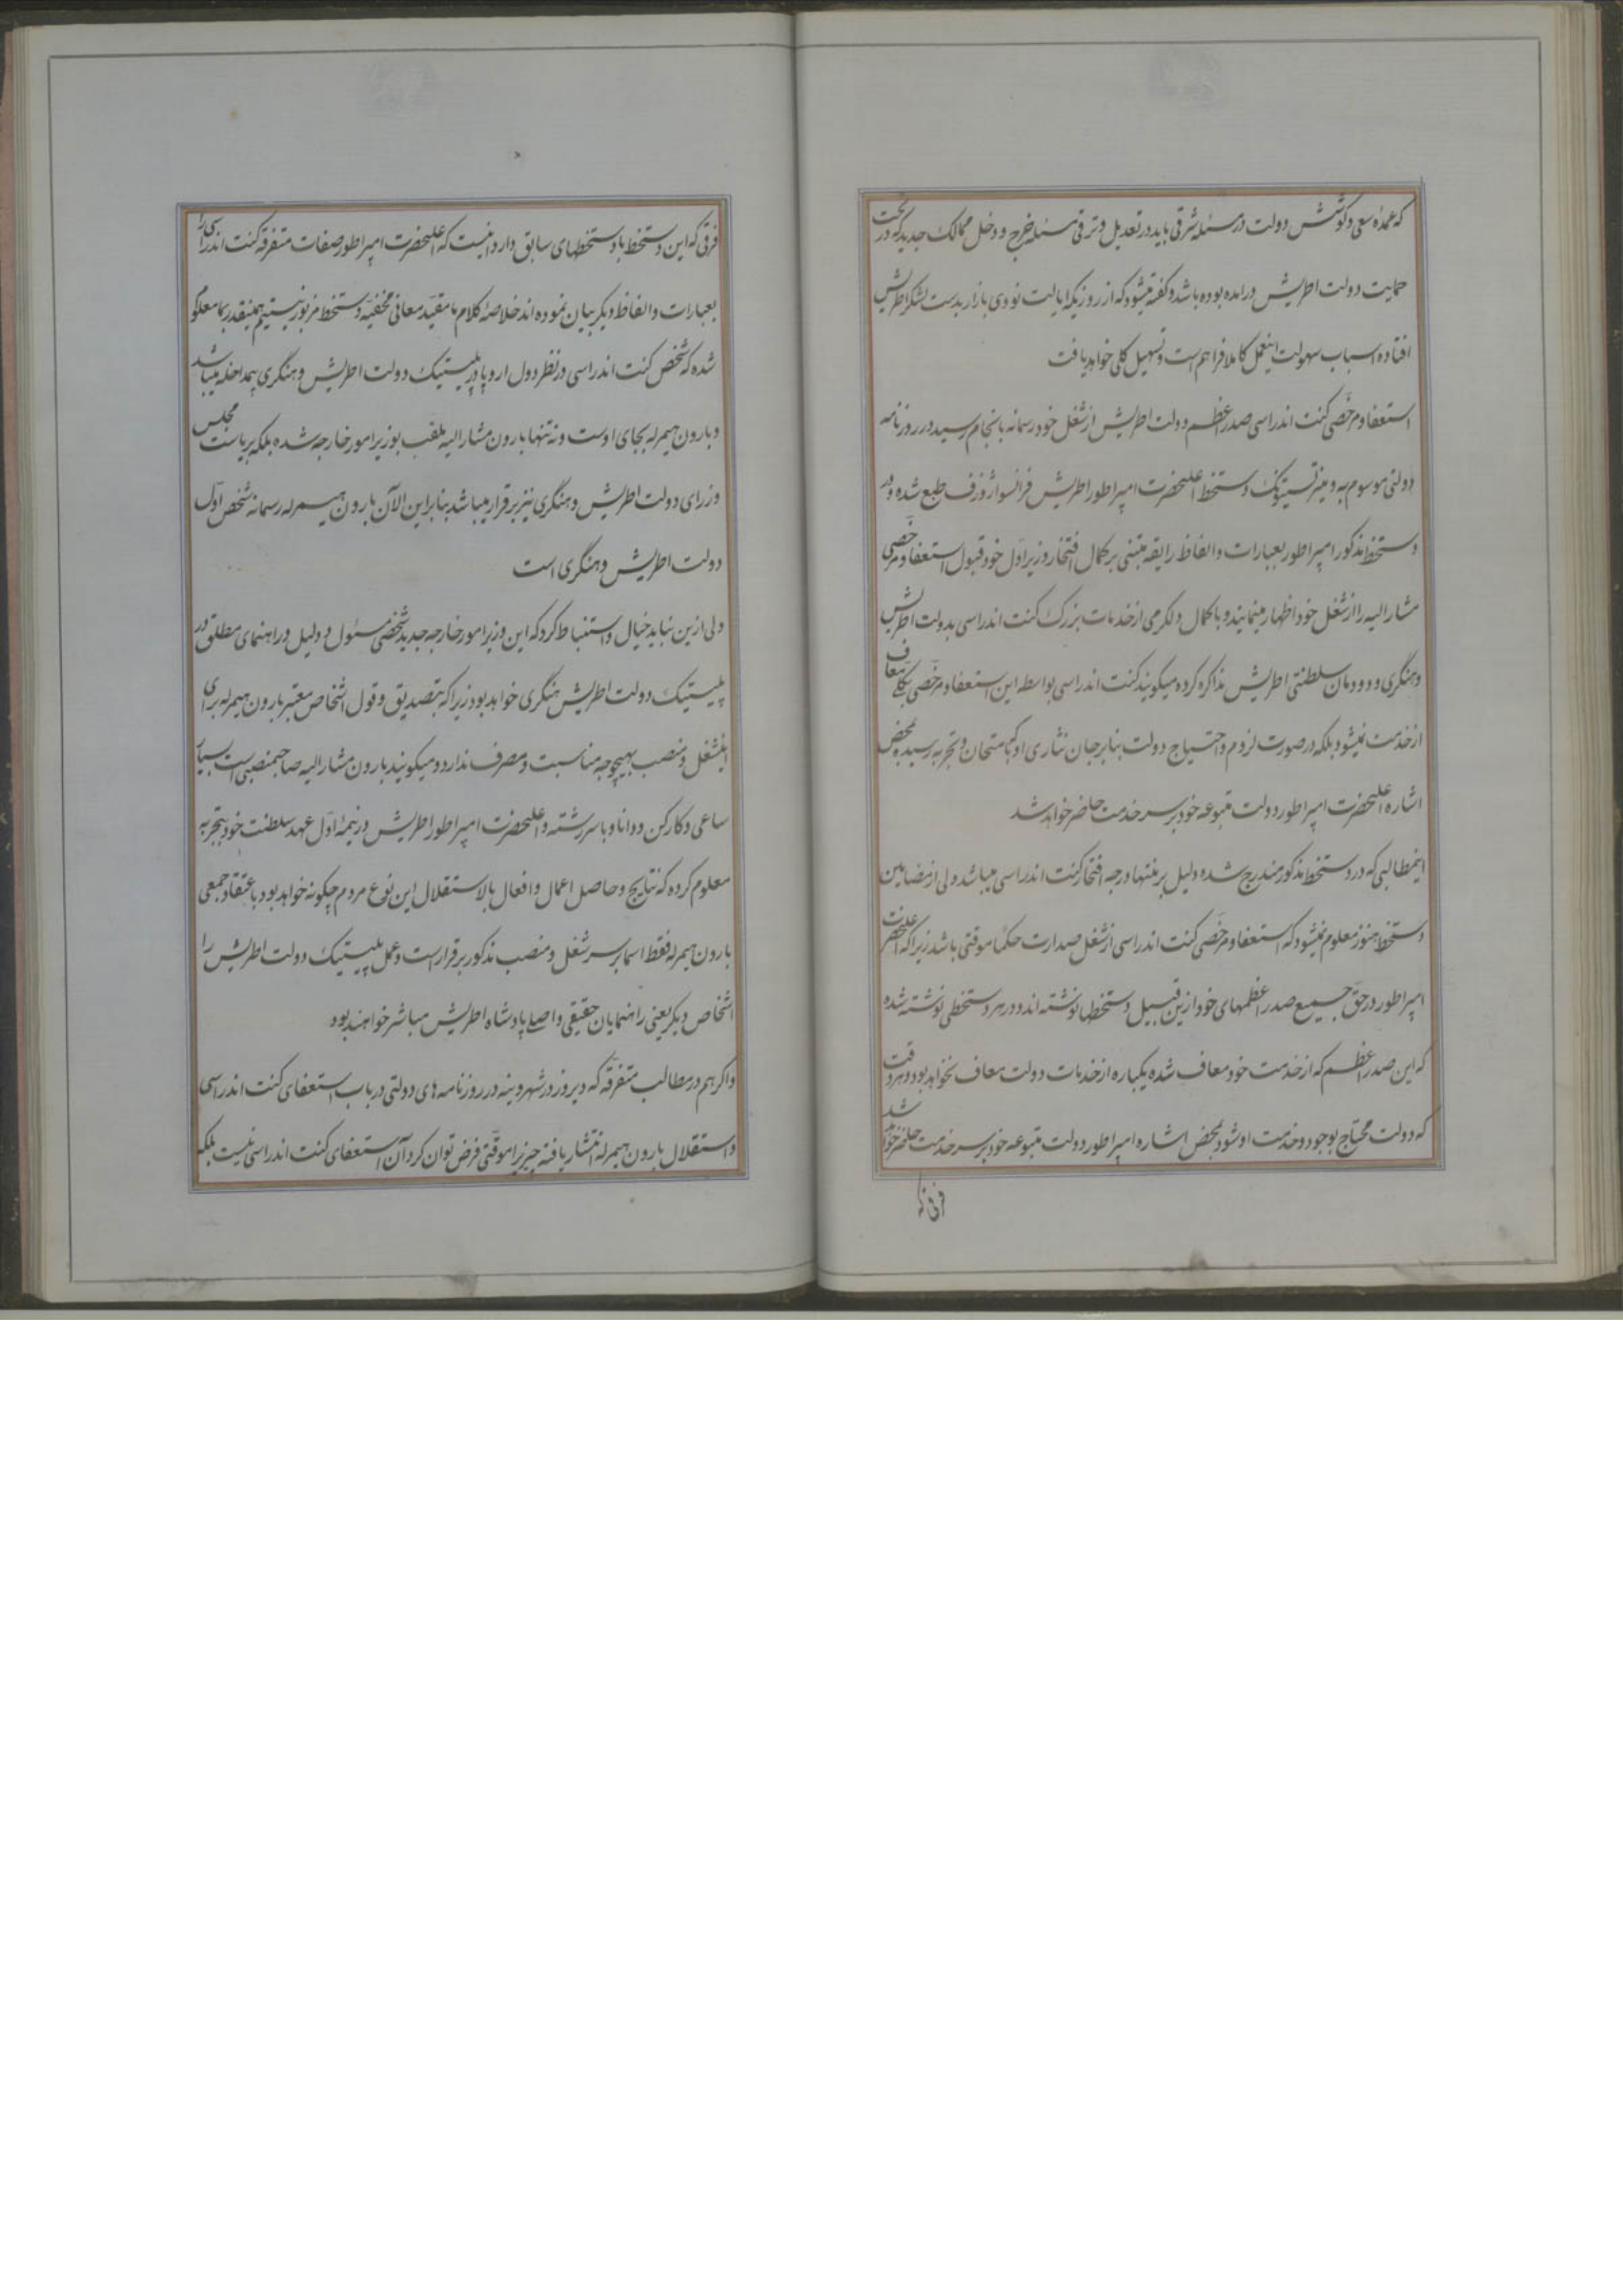 که عمدهٔ سعی و کوشش دولت در مسئلهٔ شرقی باید در تعدیل و ترقی مسئله خرج و دخل ممالک جدید که در تحت
حمایت دولت اطریش درامده بوده باشد و کفته میشود که از روزیکه ایالت نووی بازار بدست لشکر اطریش
افتاده اسباب سهولت اینعمل کاملا فراهم است و تسهیل کلی خواهد یافت
استعفا و مرخصی کنت اندراسی صدر اعظم دولت اطریش از شغل خود رسمانه بانجام رسید در روزنامه
دولتی موسوم به وینر تسیتونک دستخط اعلیحضرت امپراطور اطریش فرانسوا ژوزف طبع شده و در
دستخط مذکور امپراطور بعبارات و الفاظ رایقه مبتنی بر کمال افتخار وزیر اول خود قبول استعفا و مرخصی
مشارالیه را از شغل خود اظهار مینمایند و با کمال دلکرمی از خدمات بزرک کنت اندراسی بدولت اطریش
و هنگری و دودمان سلطنتی اطریش مذاکره کرده میکویند کنت اندراسی بواسطه این استعفا و مرخصی بکلی معاف
از خدمت نمیشود بلکه در صورت لزوم و احتیاج دولت بنابر جان نثاری او که بامتحان و تجربه رسیده بمحض
اشاره اعلیحضرت امپراطور دولت متبوعه خود بر سر خدمت حاضر خواهد شد
اینمطالبی که در دستخط مذکور مندرج شده دلیل بر منتها درجه افتخار کنت اندراسی میباشد ولی از مضامین
دستخط هنوز معلوم نمیشود که استعفا و مرخصی کنت اندراسی از شغل صدارت حکماً موقتی باشد زیرا که اعلیحضرت
امپراطور در حق جمیع صدر اعظمهای خود ازین قبیل دستخطها نوشته اند و در هر دستخطی نوشته شده
که این صدر اعظم که از خدمت خود معاف شده یکباره از خدمات دولت معاف نخواهد بود و هر وقت
که دولت محتاج بوجود و خدمت او شود بمحض اشاره امپراطور دولت متبوعه خود بر سر خدمت حاضر خواهد شد
فرقی که
فرقی که این دستخط با دستخطهای سابق دارد اینست که اعلیحضرت امپراطور صفات متفرقه کنت اندراسی را
بعبارات و الفاظ دیکر بیان نموده اند خلاصهٔ کلام ما مقید معانی مخفیه دستخط مزبور نیستیم همینقدر بما معلوم
شده که شخص کنت اندراسی در نظر دول اروپا در پلیتیک دولت اطریش و هنگری بیمداخله میباشد
و بارون هیمرله بجای اوست و نه تنها بارون مشارالیه ملقب بوزیر امور خارجه شده بلکه بریاست مجلس
وزرای دولت اطریش و هنگری نیز برقرار میباشد بنابراین الآن بارون هیمرله رسمانه شخص اول
دولت اطریش و هنگری است
ولی ازین نباید خیال و استنباط کرد که این وزیر امور خارجه جدید شخصی مسئول و دلیل و راهنمای مطلق در
پلیتیک دولت اطریش هنگری خواهد بود زیرا که بتصدیق و قول اشخاص معتبر بارون هیمرله برای
اینشغل و منصب بهیچوجه مناسبت و مصرف ندارد و میکویند بارون مشارالیه صاحبمنصبی است بسیار
ساعی و کارکن و دانا و با سررشته و اعلیحضرت امپراطور اطریش در نیمهٔ اول عهد سلطنت خود بتجربه
معلوم کرده که نتایج و حاصل اعمال و افعال بالاستقلال این نوع مردم چکونه خواهد بود باعتقاد جمعی
بارون هیمرله فقط اسما بر سر شغل و منصب مذکور برقرار است و عمل پلیتیک دولت اطریش را
اشخاص دیکر یعنی راهنمایان حقیقی و اصلی پادشاه اطریش مباشر خواهند بود
و اکر هم در مطالب متفرقه که دیروز در شهر وینه در روزنامه های دولتی در باب استعفای کنت اندراسی
و استقلال بارون هیمرله انتشار یافته چیزیرا موقتی فرض توان کرد آن استعفای کنت اندراسی نیست بلکه